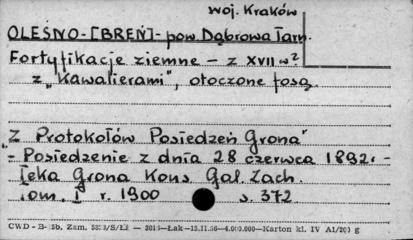 woj. Kraków
OLEŚNO-[BREŃ]- pow Dąbrowa Tarn.
Fortyfikacje ziemne - z XVII w?
z „Kawalierami", otoczone fosą
„Z Protokołów Posiedzeń Grona"
- Posiedzenie z dnia 28 czerwca 1892. -
Teka Grona Kons Gal. Zach.
Tom. I r. 1900 s. 372
CWD - B- Zam. Łak-15.11.56-4.000.000-Karton kl. IV A1/200 g